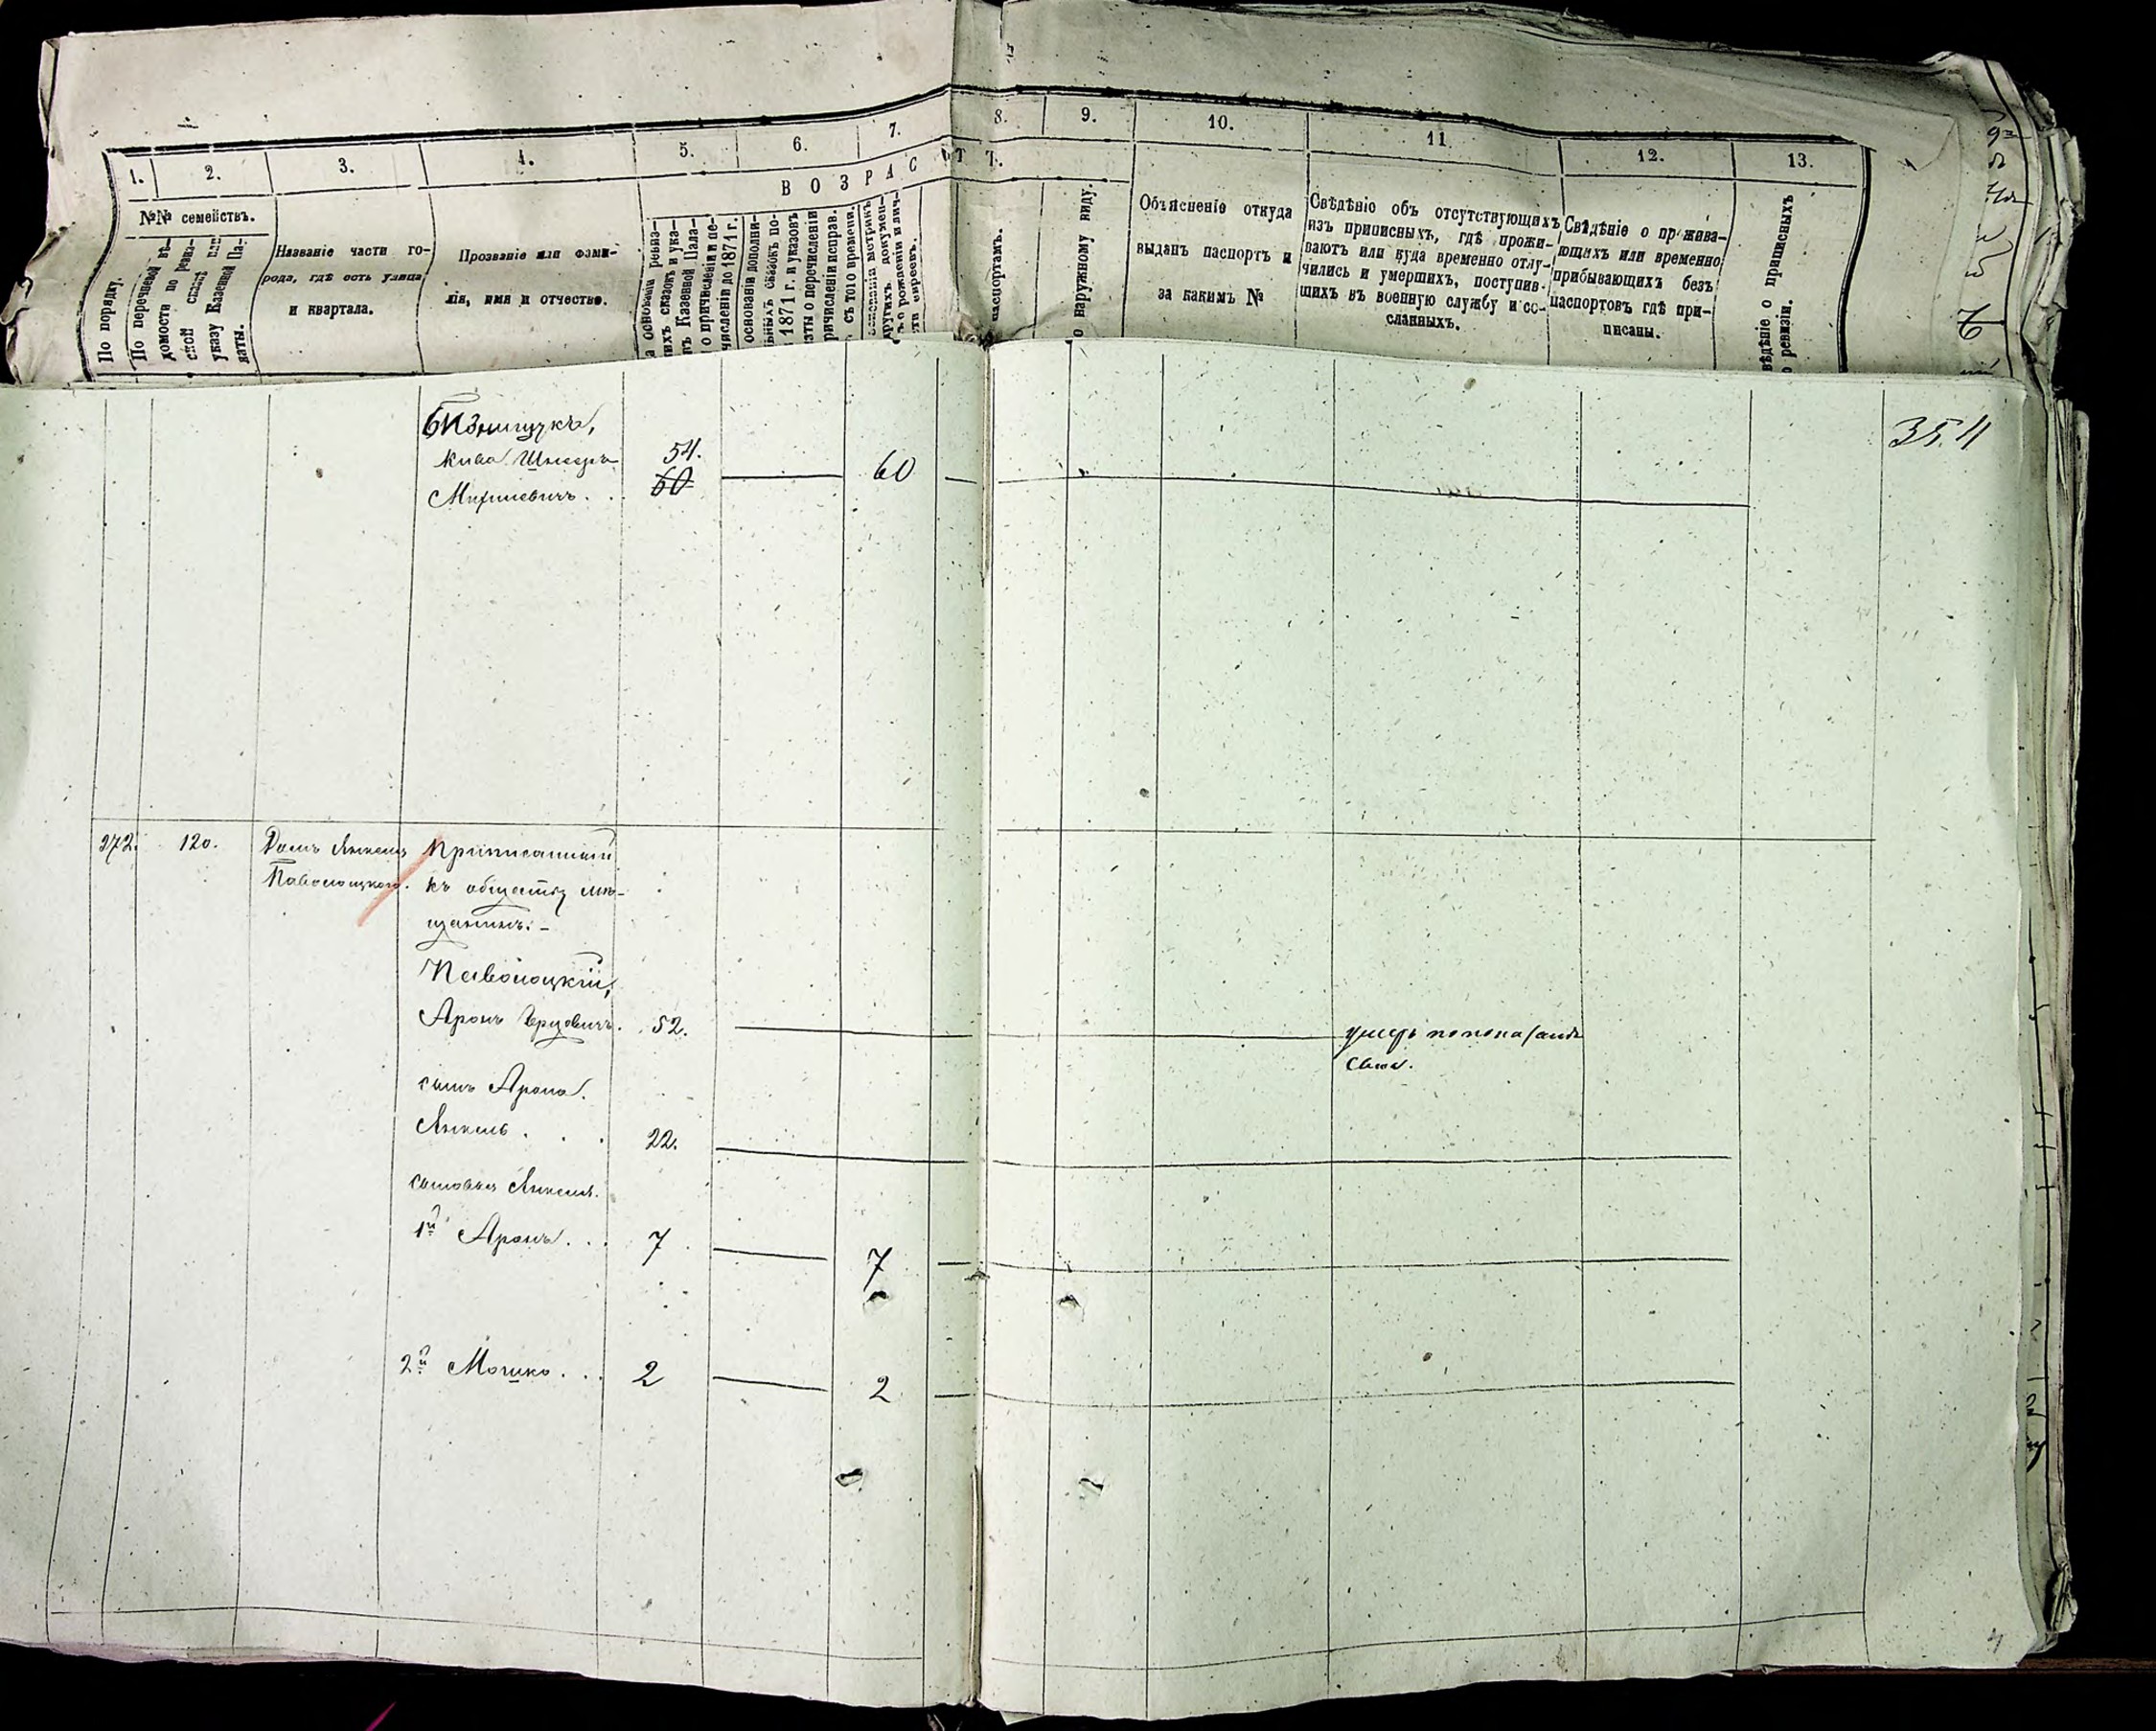 1. 2. 3. 4. 5. 6. 7. 8. 9. 10. 11. 12. 13.
ВОЗРАСТЪ.
№№ семействъ.
По порядку.
По перечневой вѣ-
домости по ревиз-
ской сказкѣ или
указу Казенной Па-
латы.
Названіе части го-
рода, гдѣ есть улица
и квартала.
Прозваніе или фами-
лія, имя и отчество.
а основаніи ревиз-
ихъ сказокъ и ука-
въ Казенной Пала-
о причисленіи и пе-
численіи до 1871 г.
основаніи дополни-
ныхъ сказокъ по-
1871 г. и указовъ
аты о перечисленіи
ричисленіи исправ.
съ того времени.
основаніи метрикъ
другихъ докумен-
ъ о рожденіи и лич-
сти евреевъ.
паспортамъ.
о наружному виду.
Объясненіе откуда
выданъ паспортъ и
за какимъ №
Свѣдѣніе объ отсутствующихъ
изъ приписныхъ, гдѣ прожи-
ваютъ или куда временно отлу-
чились и умершихъ, поступив-
шихъ въ военную службу и со-
сланныхъ.
Свѣдѣніе о прожива-
ющихъ или временно
прибывающихъ безъ
паспортовъ гдѣ при-
писаны.
вѣдѣніе о приписныхъ
о ревизіи.
Кива
54.
60 60
272. 120. Домъ Янкеля Приписанный
Паволоцкаго. къ обществу мѣ-
щанинъ:-
Паволоцкій,
Аронъ Герцовичъ. 52. умеръ по показанію
сына.
сынъ Арона.
Янкель . . . 22.
сыновья Янкеля.
1й Аронъ . . . 7 7
2й Мошко . . . 2 2